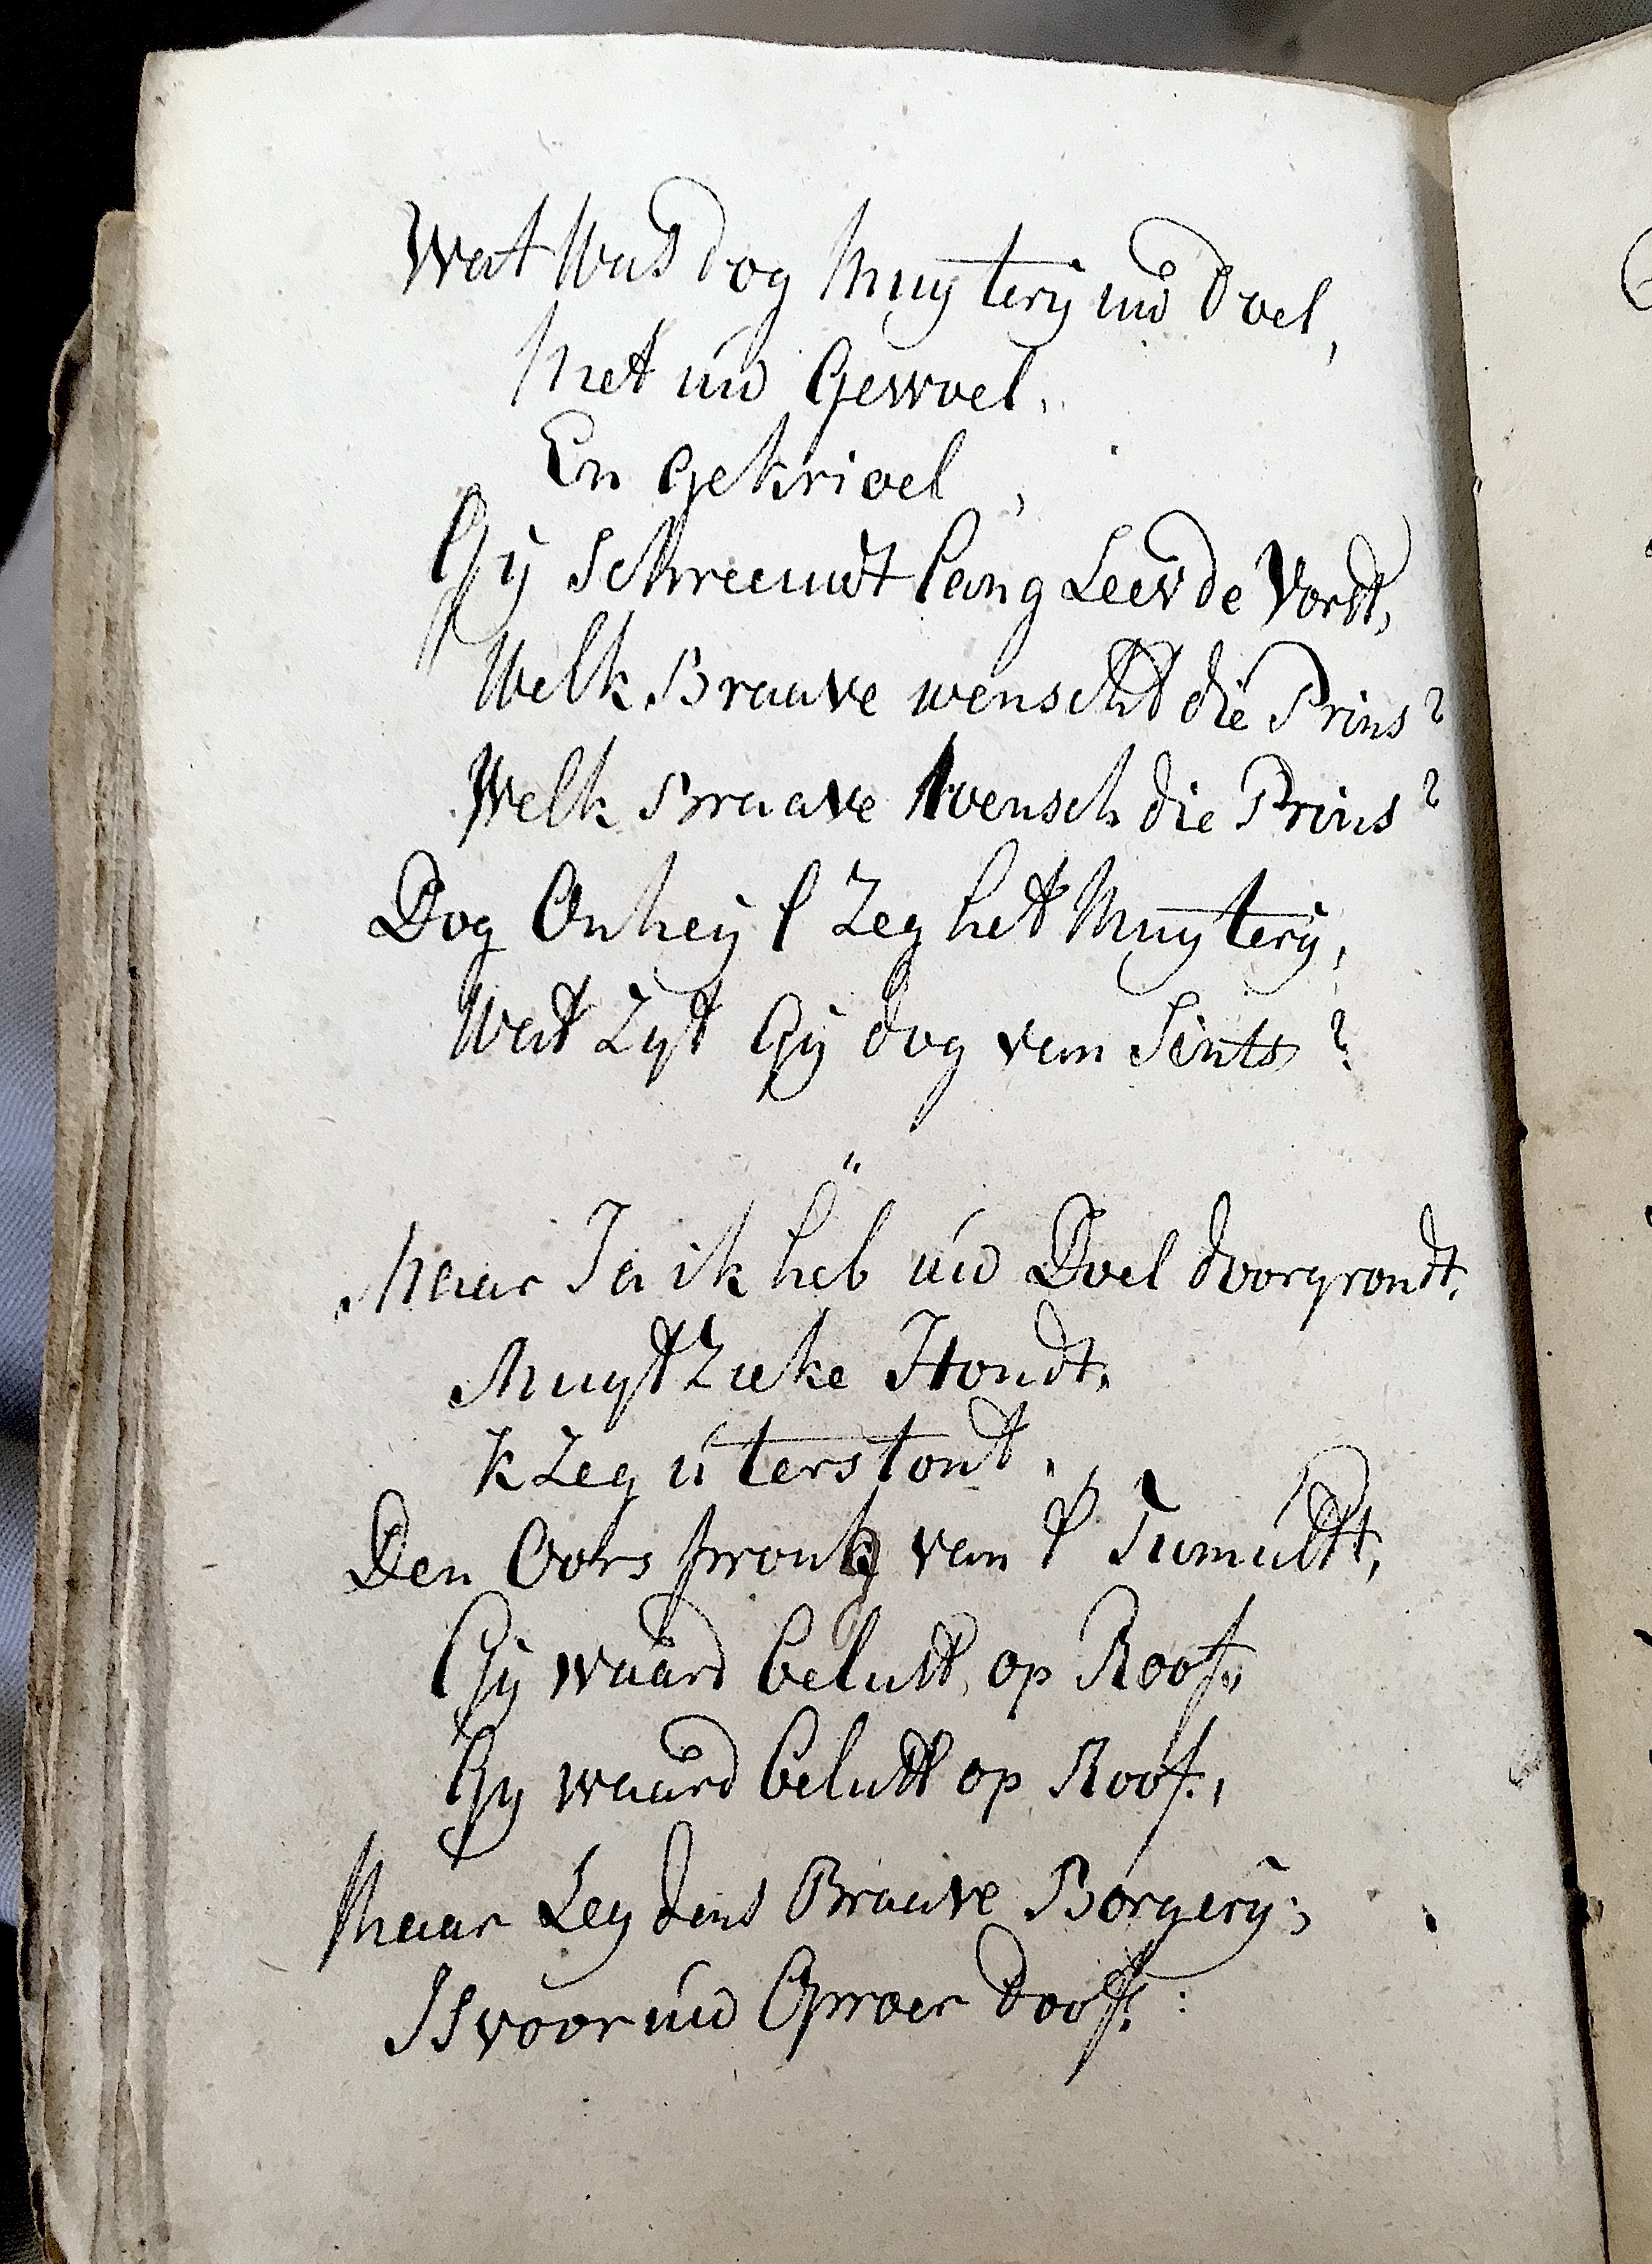 Wat Was dog Muytery uw Doel,
Met uw Gewoel,
En Gekrioel,
Gy Schreeuwt lang Leev de Vorst,
Welk Braave wenscht die Prins?
Welk Braave Wensch die Prins?
Dog Onheyl Zeg het Muytery,
Wat Zyt Gy dog van Sints?
"
Maar Ja ik heb uw Doel doorgrondt,
Muyt Zieke Hondt,
K Zeg u terstont,
Den Oorspronk van 't Tumult,
Gy waard belust op Roof,
Gy waard belust op Roof,
Maar Leydens Braave Borgery,
Is voor uw Oproer Doof: